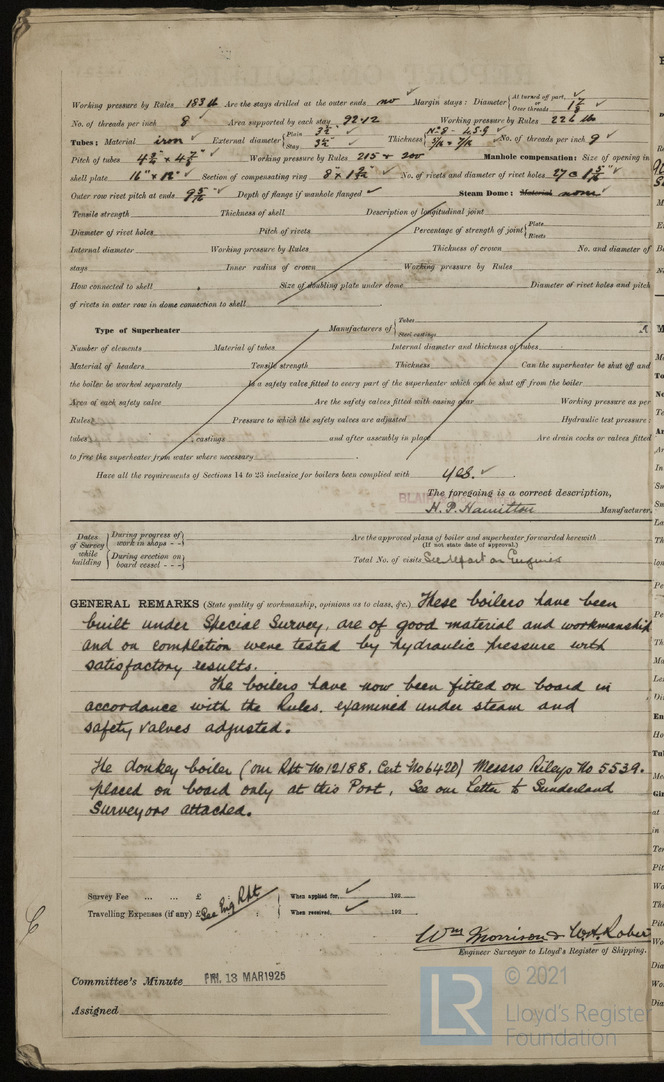 Working pressure by Rules 183 lb Are the stays drilled at the outer ends no Margin stays: Diameter { At turned off part, or Over threads 1 7/8
No. of threads per inch 8 Area supported by each stay 92 Working pressure by Rules 226 lb
Tubes: Material iron External diameter { Plain 3 1/4" Stay 3 1/4" Thickness { No. of threads per inch 9
Pitch of tubes Working pressure by Rules 215 & 200 Manhole compensation: Size of opening in
shell plate 16" x 12" Section of compensating ring No. of rivets and diameter of rivet holes
Outer row rivet pitch at ends Depth of flange if manhole flanged Steam Dome: Material none
Tensile strength Thickness of shell Description of longitudinal joint
Diameter of rivet holes Pitch of rivets Percentage of strength of joint { Plate Rivets
Internal diameter Working pressure by Rules Thickness of crown No. and diameter of
stays Inner radius of crown Working pressure by Rules
How connected to shell Size of doubling plate under dome Diameter of rivet holes and pitch
of rivets in outer row in dome connection to shell
Type of Superheater Manufacturers of { Tubes Steel castings
Number of elements Material of tubes Internal diameter and thickness of tubes
Material of headers Tensile strength Thickness Can the superheater be shut off and
the boiler be worked separately Is a safety valve fitted to every part of the superheater which can be shut off from the boiler
Area of each safety valve Are the safety valves fitted with easing gear Working pressure as per
Rules Pressure to which the safety valves are adjusted Hydraulic test pressure:
tubes castings and after assembly in place Are drain cocks or valves fitted
to free the superheater from water where necessary
Have all the requirements of Sections 14 to 23 inclusive for boilers been complied with yes.
The foregoing is a correct description,
H. P. Hamilton Manufacturer.
Dates of Survey while building { During progress of work in shops - - During erection on board vessel - - - } Are the approved plans of boiler and superheater forwarded herewith
(If not state date of approval.)
Total No. of visits See report on Engines
GENERAL REMARKS (State quality of workmanship, opinions as to class, &c.) These boilers have been
built under Special Survey, are of good material and workmanship
and on completion were tested by hydraulic pressure with
satisfactory results.
The boilers have now been fitted on board in
accordance with the Rules, examined under steam and
safety valves adjusted.
The donkey boiler (our Rpt No 12188, Cert No 6420) Messrs Rileys No 5539.
placed on board only at this Port, See our Letter to Sunderland
Surveyors attached.
Survey Fee ... ... £ When applied for, 192
Travelling Expenses (if any) £ See Eng Rpt : : When received, 192
Wm Morrison & W.H. Rober
Engineer Surveyor to Lloyd's Register of Shipping.
Committee's Minute FRI. 13 MAR 1925
Assigned
© 2021
LR Lloyd's Register
Foundation